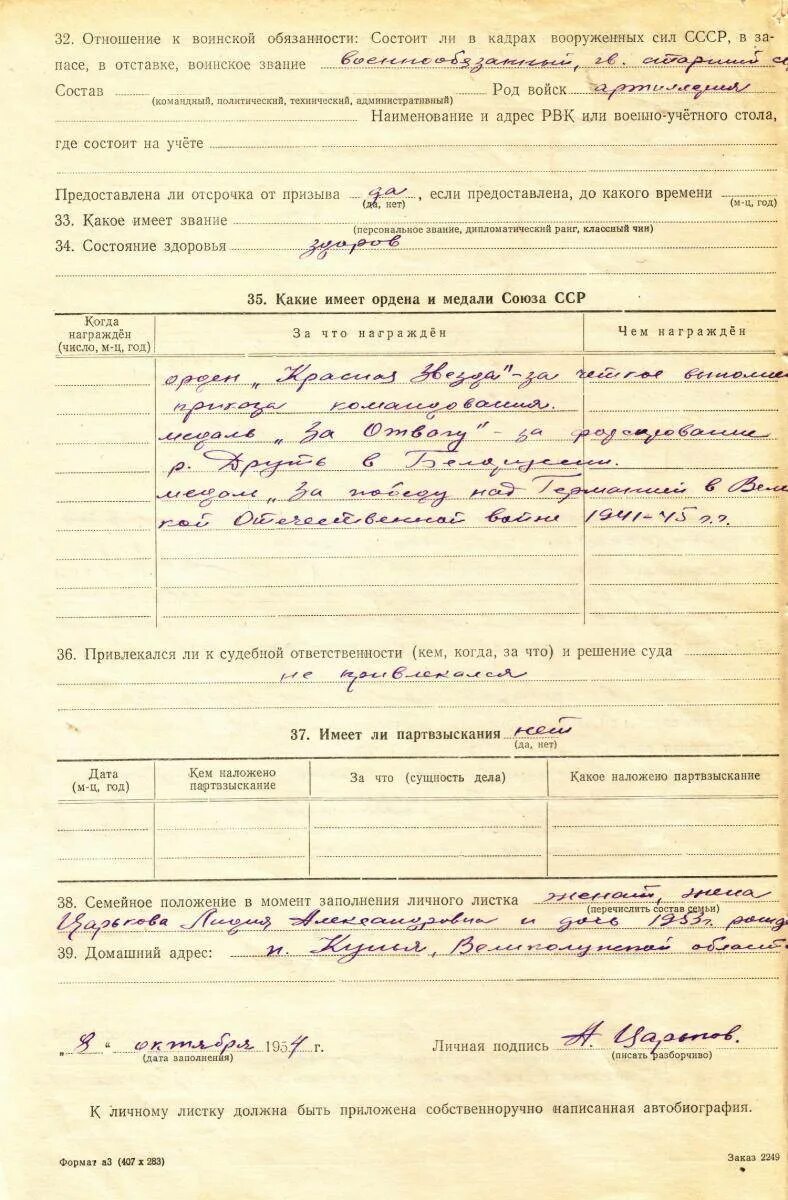 32. Отношение к воинской обязанности: Состоит ли в кадрах вооруженных сил СССР, в за-
пасе, в отставке, воинское звание военнообязанный, гв. старший се
Состав Род войск артиллерия
(командный, политический, технический, административный)
Наименование и адрес РВК или военно-учётного стола,
где состоит на учёте
Предоставлена ли отсрочка от призыва да, если предоставлена, до какого времени
(да, нет) (м-ц, год)
33. Какое имеет звание
(персональное звание, дипломатический ранг, классный чин)
34. Состояние здоровья здоров
35. Какие имеет ордена и медали Союза ССР
Когда награждён (число, м-ц, год) За что награждён Чем награждён
орден „Красная Звезда" - за чёткое выполне
приказа командования.
медаль „За Отвагу" - за форсирование
р. Друть в Белоруссии.
медаль „За победу над Германией в Вели
кой Отечественной войне 1941-45 г.г.
36. Привлекался ли к судебной ответственности (кем, когда, за что) и решение суда
не привлекался
37. Имеет ли партвзыскания нет
(да, нет)
Дата (м-ц, год) Кем наложено партвзыскание За что (сущность дела) Какое наложено партвзыскание
38. Семейное положение в момент заполнения личного листка женат, жена
(перечислить состав семьи)
Царькова Лидия Александровна и дочь 1953г. рожд
39. Домашний адрес: п. Кунья, Великолукской област
„8" октября 1954 г. Личная подпись А. Царьков.
(дата заполнения) (писать разборчиво)
К личному листку должна быть приложена собственноручно написанная автобиография.
Формат а3 (407 х 283) Заказ 2249